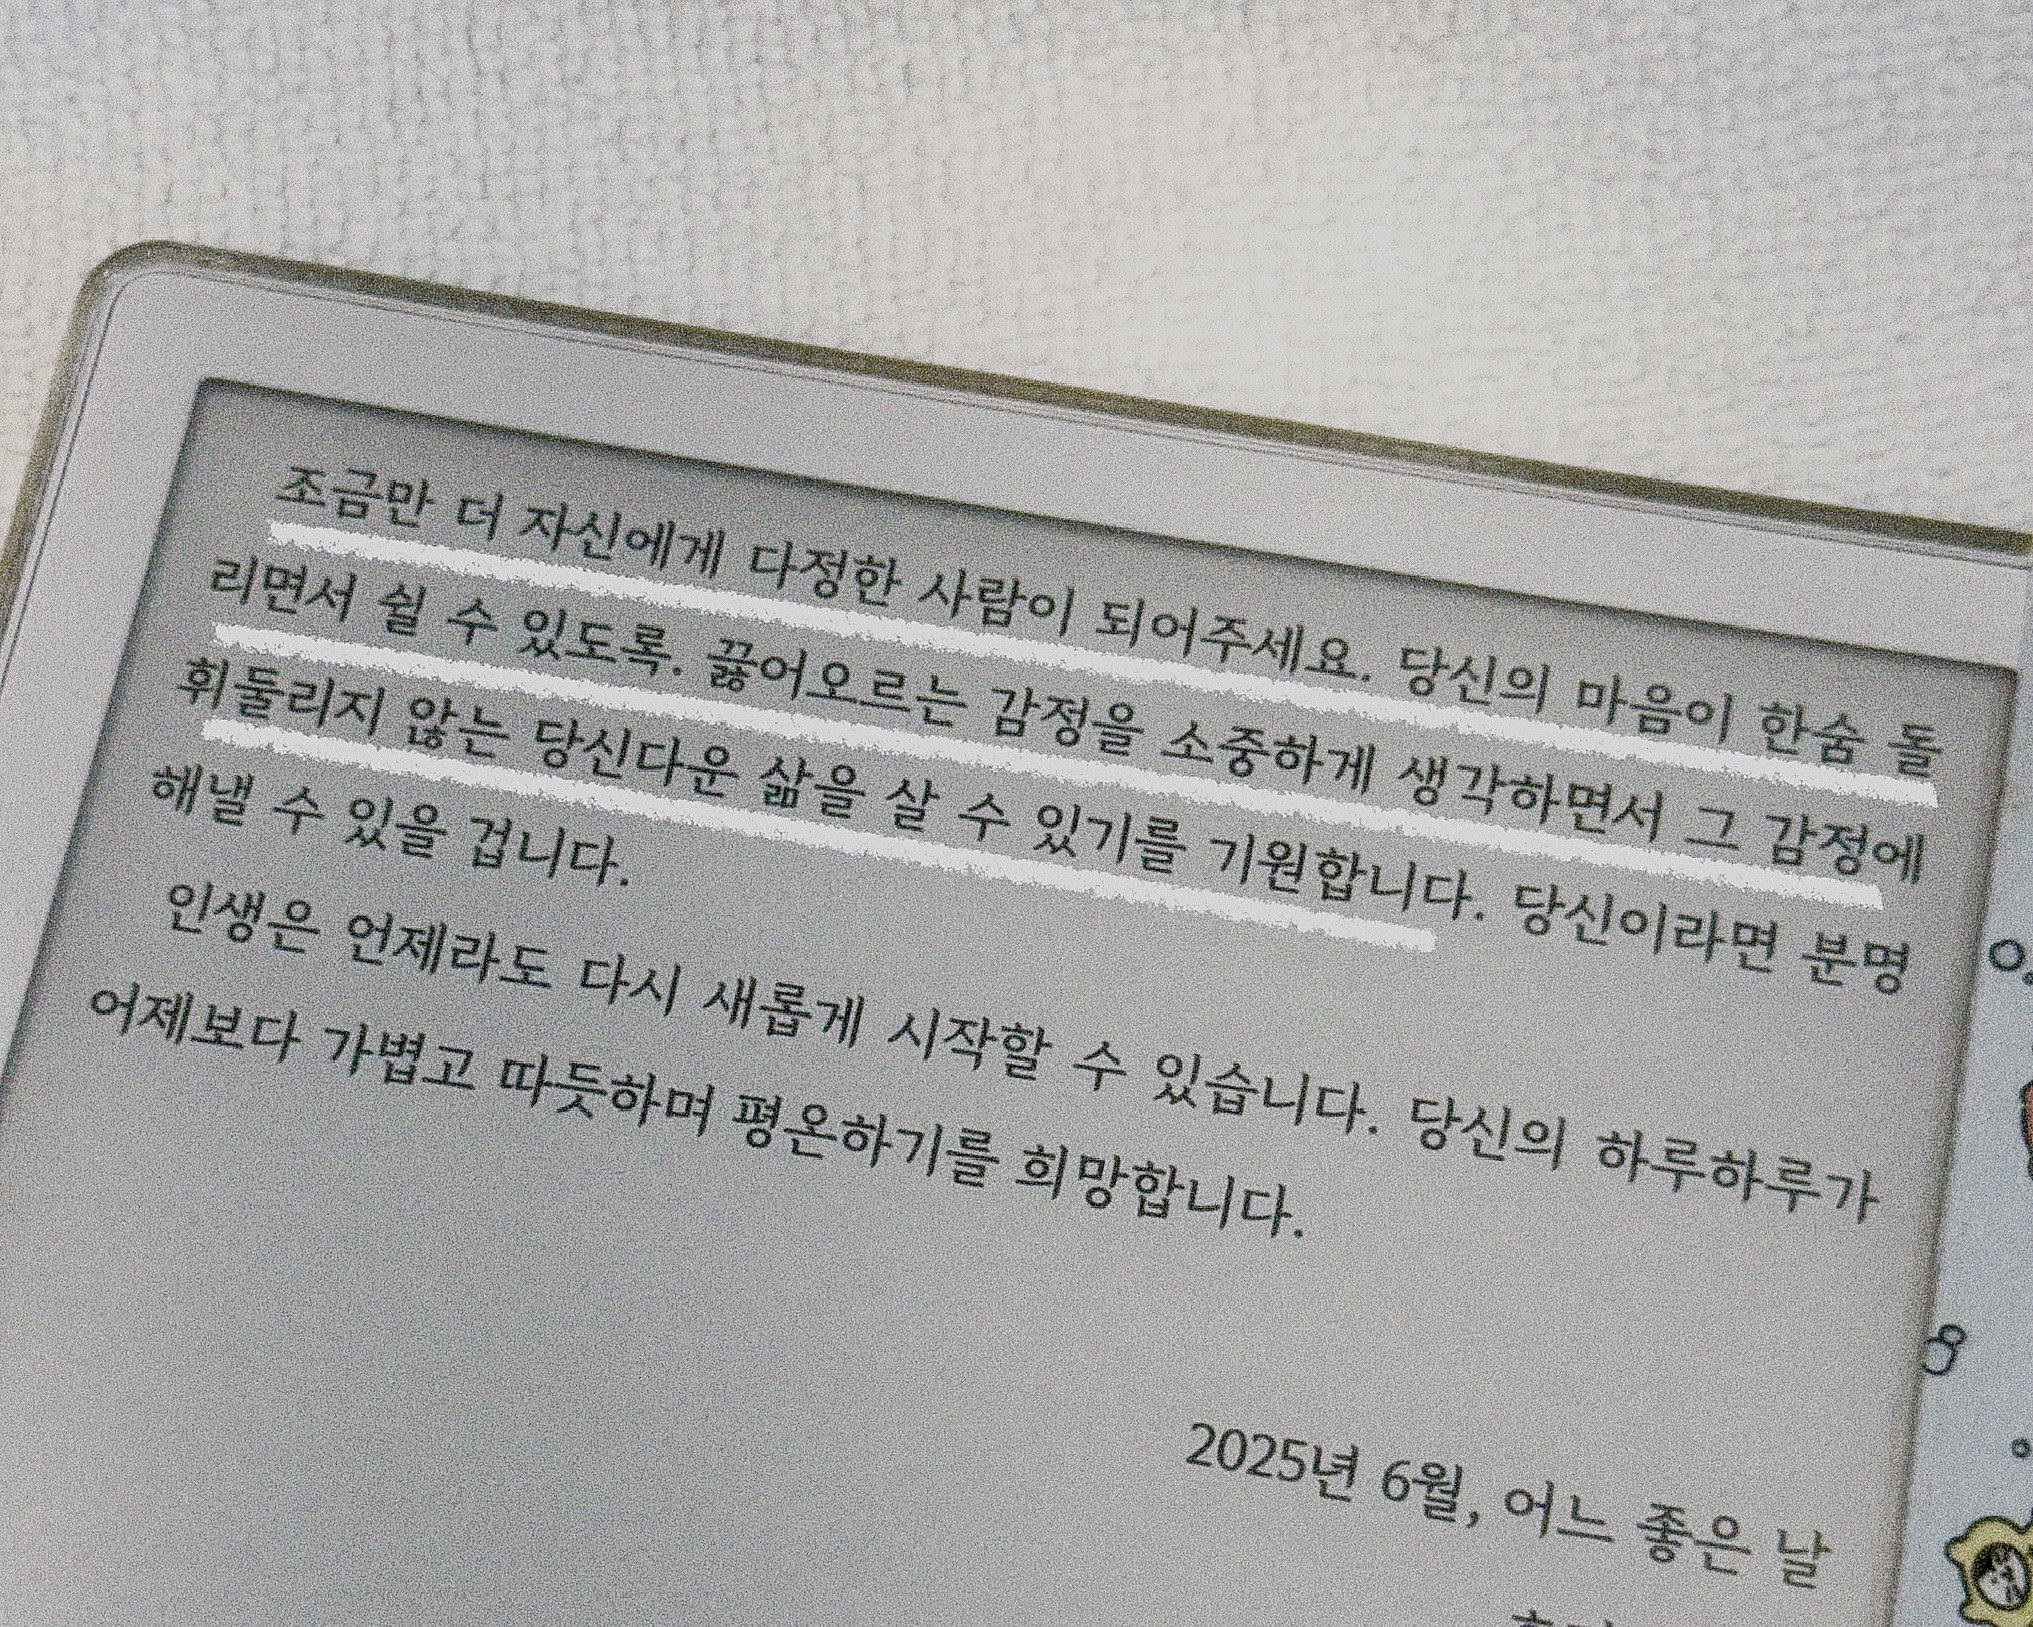 조금만 더 자신에게 다정한 사람이 되어주세요. 당신의 마음이 한숨 돌
리면서 쉴 수 있도록. 끓어오르는 감정을 소중하게 생각하면서 그 감정에
휘둘리지 않는 당신다운 삶을 살 수 있기를 기원합니다. 당신이라면 분명
해낼 수 있을 겁니다.
인생은 언제라도 다시 새롭게 시작할 수 있습니다. 당신의 하루하루가
어제보다 가볍고 따듯하며 평온하기를 희망합니다.
2025년 6월, 어느 좋은 날